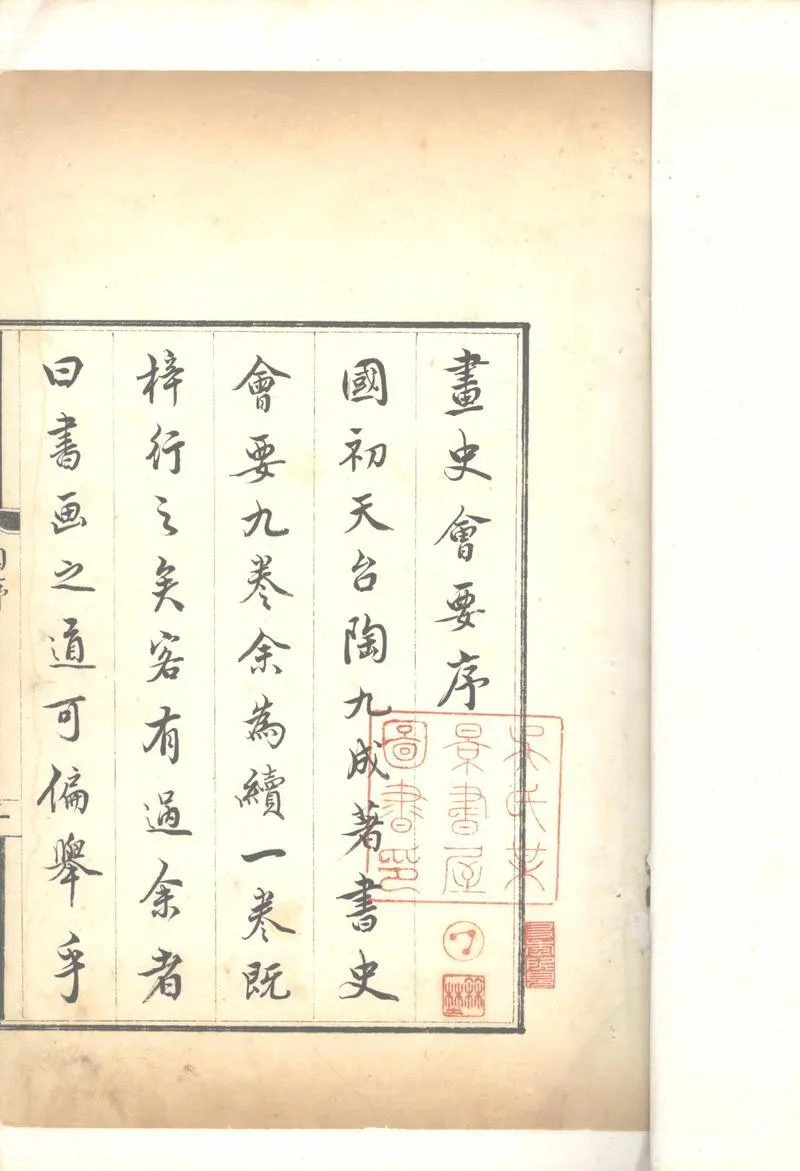 畫史會要序
國初天台陶九成著書史
會要九卷余為續一卷既
梓行之矣客有過余者
曰書画之道可偏舉乎
吳氏
景書屋
圖書印